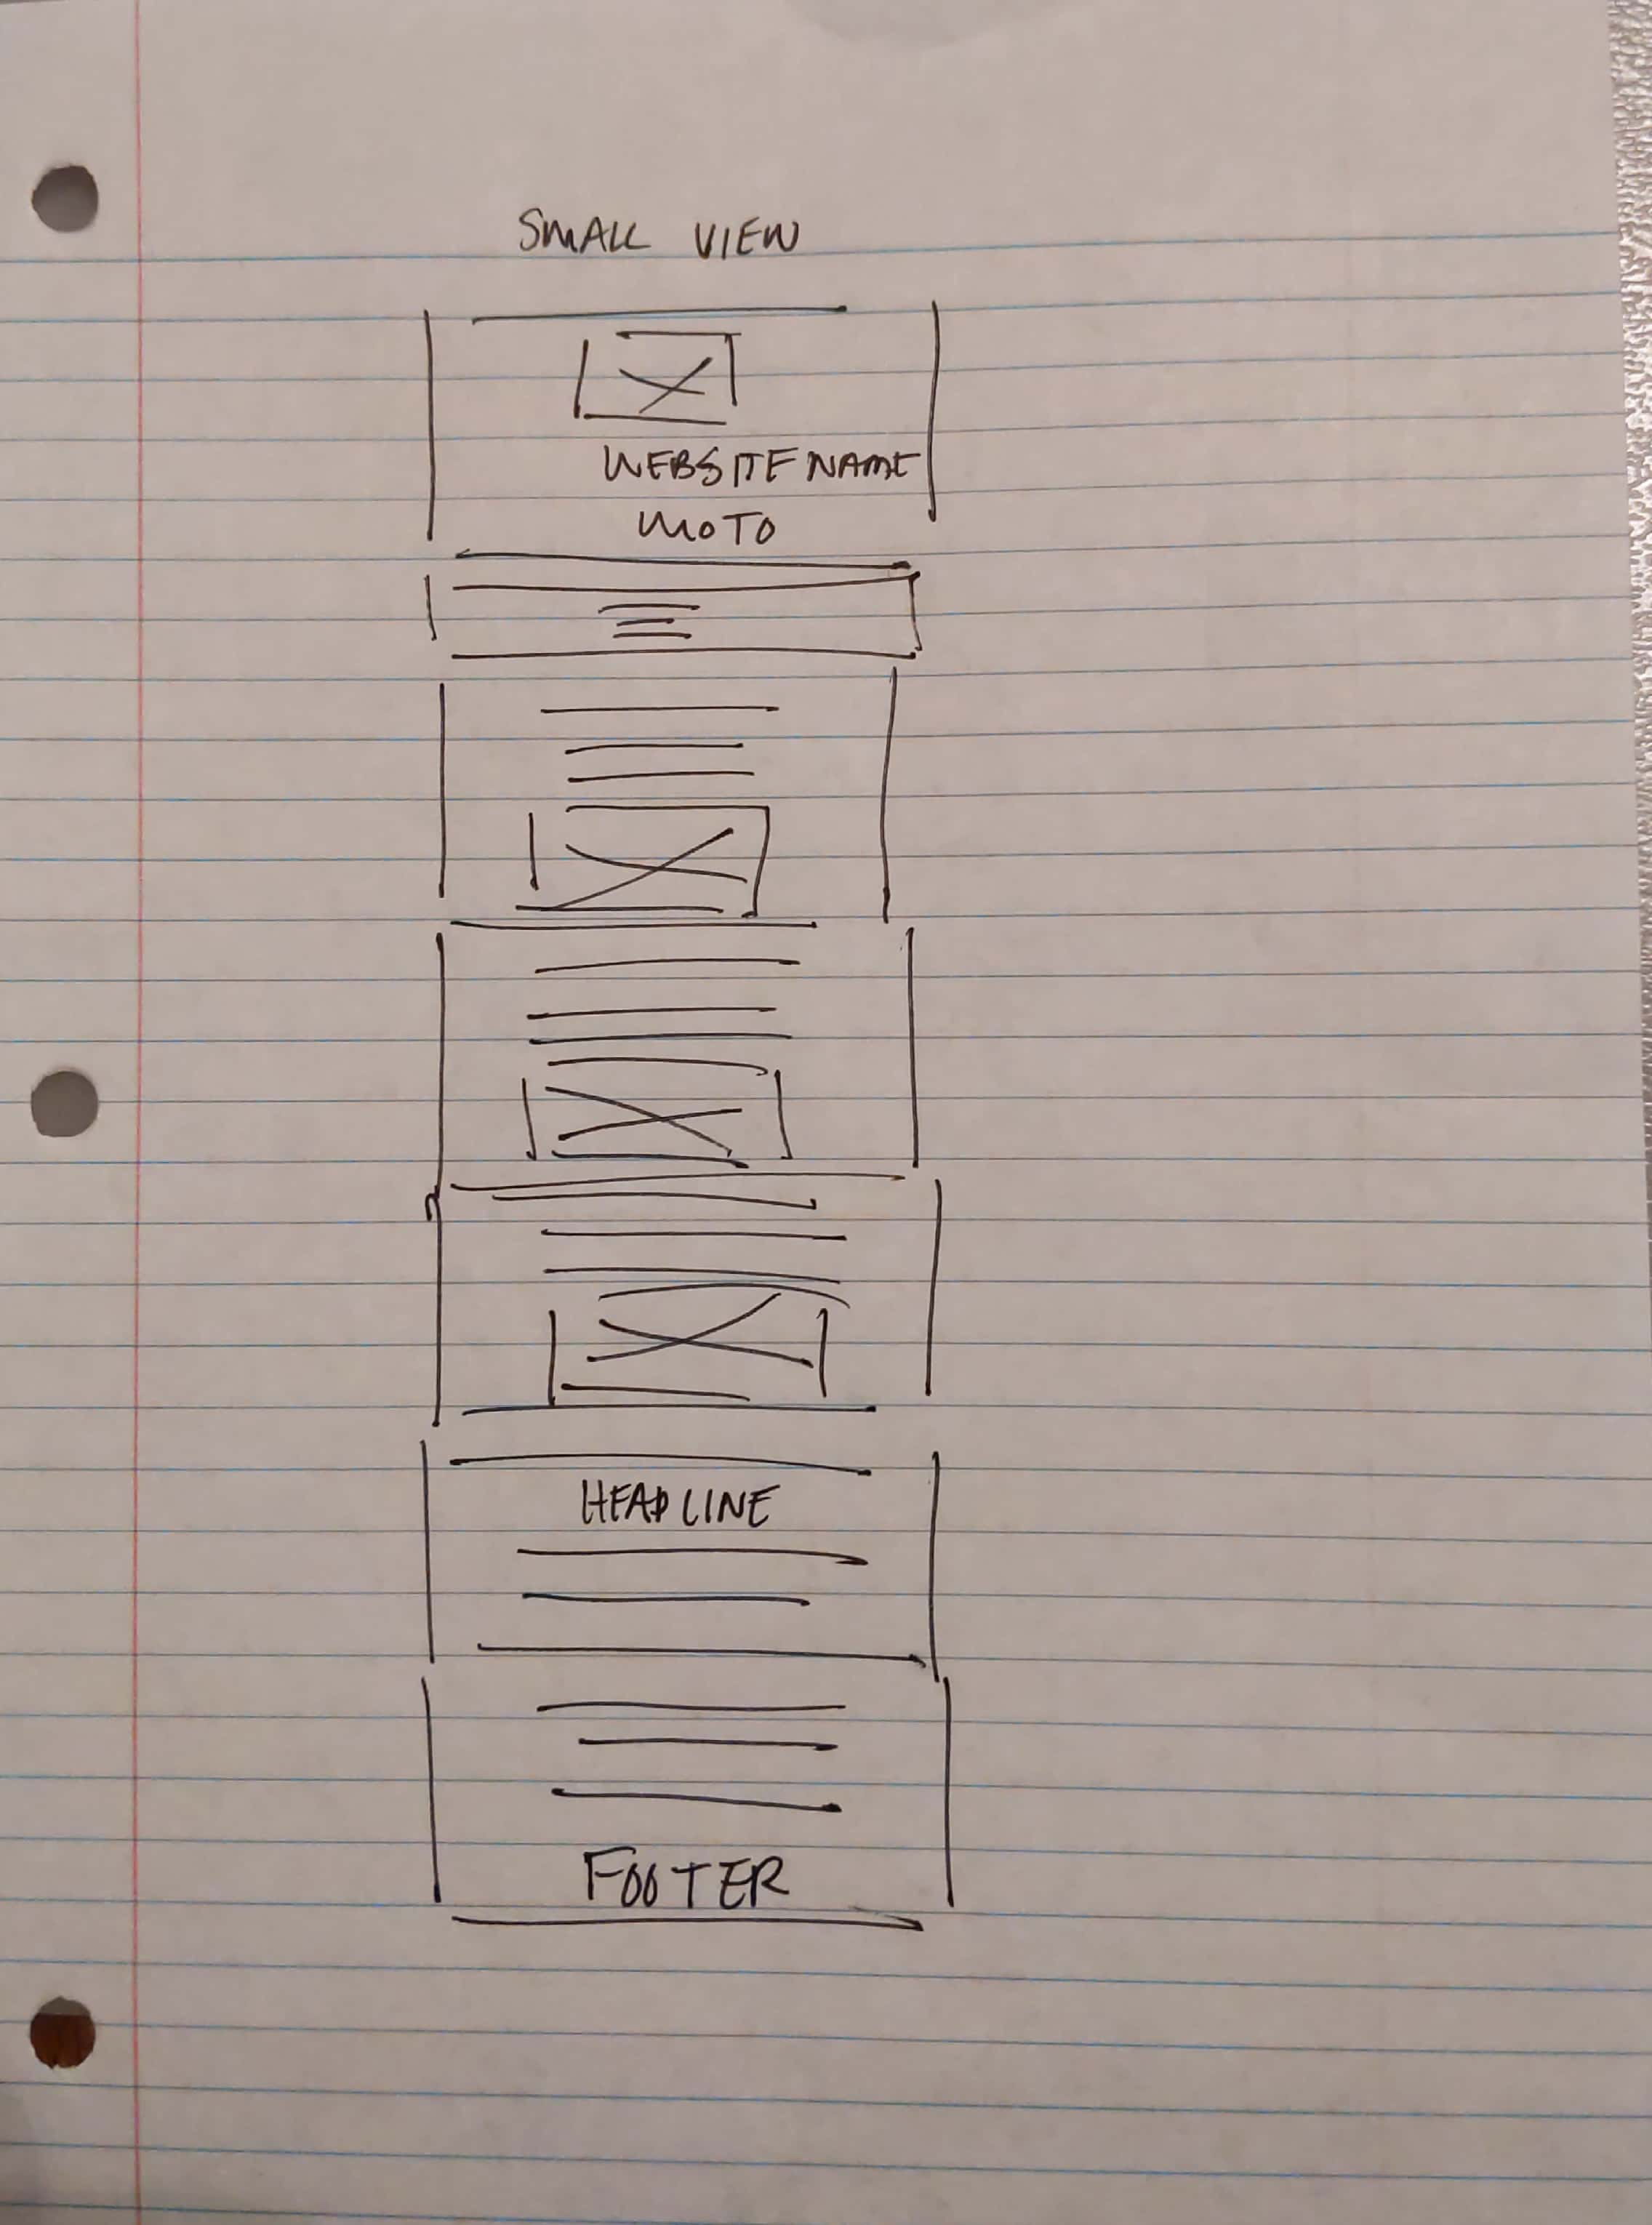 SMALL VIEW
WEBSITE NAME
MOTO
HEADLINE
FOOTER